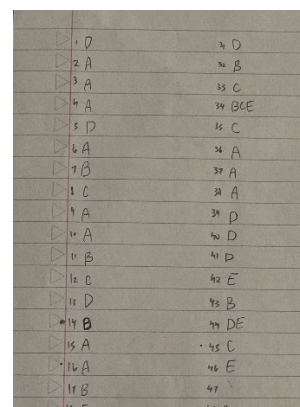 1 D
2 A
3 A
4 A
5 D
6 A
7 B
8 C
9 A
10 A
11 B
12 C
13 D
14 B
15 A
16 A
17 B
31 D
32 B
33 C
34 BCE
35 C
36 A
37 A
38 A
39 D
40 D
41 D
42 E
43 B
44 DE
45 C
46 E
47